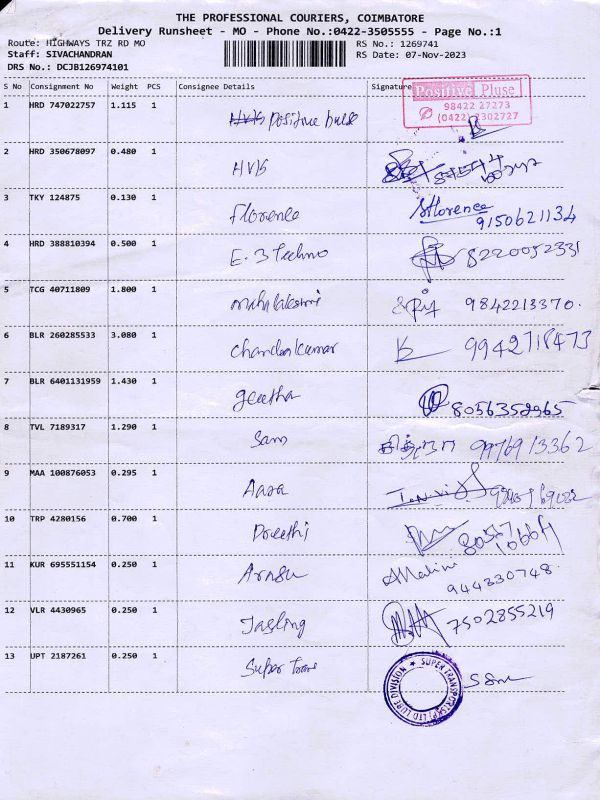 THE PROFESSIONAL COURIERS, COIMBATORE
Delivery Runsheet - MO - Phone No.:0422-3505555 - Page No.:1
Route: HIGHWAYS TRZ RD MO
RS No.: 1269741
Staff: SIVACHANDRAN
RS Date: 07-Nov-2023
DRS No.: DCJB126974101
S No Consignment No Weight PCS Consignee Details Signature
Positive Pluse
98422 27273
(0422) 2302727
1 HRD 747022757 1.115 1 Positive pulse
2 HRD 350678097 0.480 1 HVS
3 TKY 124875 0.130 1 Florence Florence
9150621134
4 HRD 388810394 0.500 1 E-3 Techno 8220052331
5 TCG 40711809 1.800 1 Mahalakshmi 9842213370.
6 BLR 260285533 3.080 1 Chandrakumar 9942718473
7 BLR 6401131959 1.430 1 geetha 8056352965
8 TVL 7189317 1.290 1 Sam 9976913362
9 MAA 100876053 0.295 1
10 TRP 4280156 0.700 1 Preethi
11 KUR 695551154 0.250 1 Malini
944330748
12 VLR 4430965 0.250 1 Jasling 7502855219
13 UPT 2187261 0.250 1 Super Trans
SUPER TRANSPORTS (P) LTD LUBE DIVISION